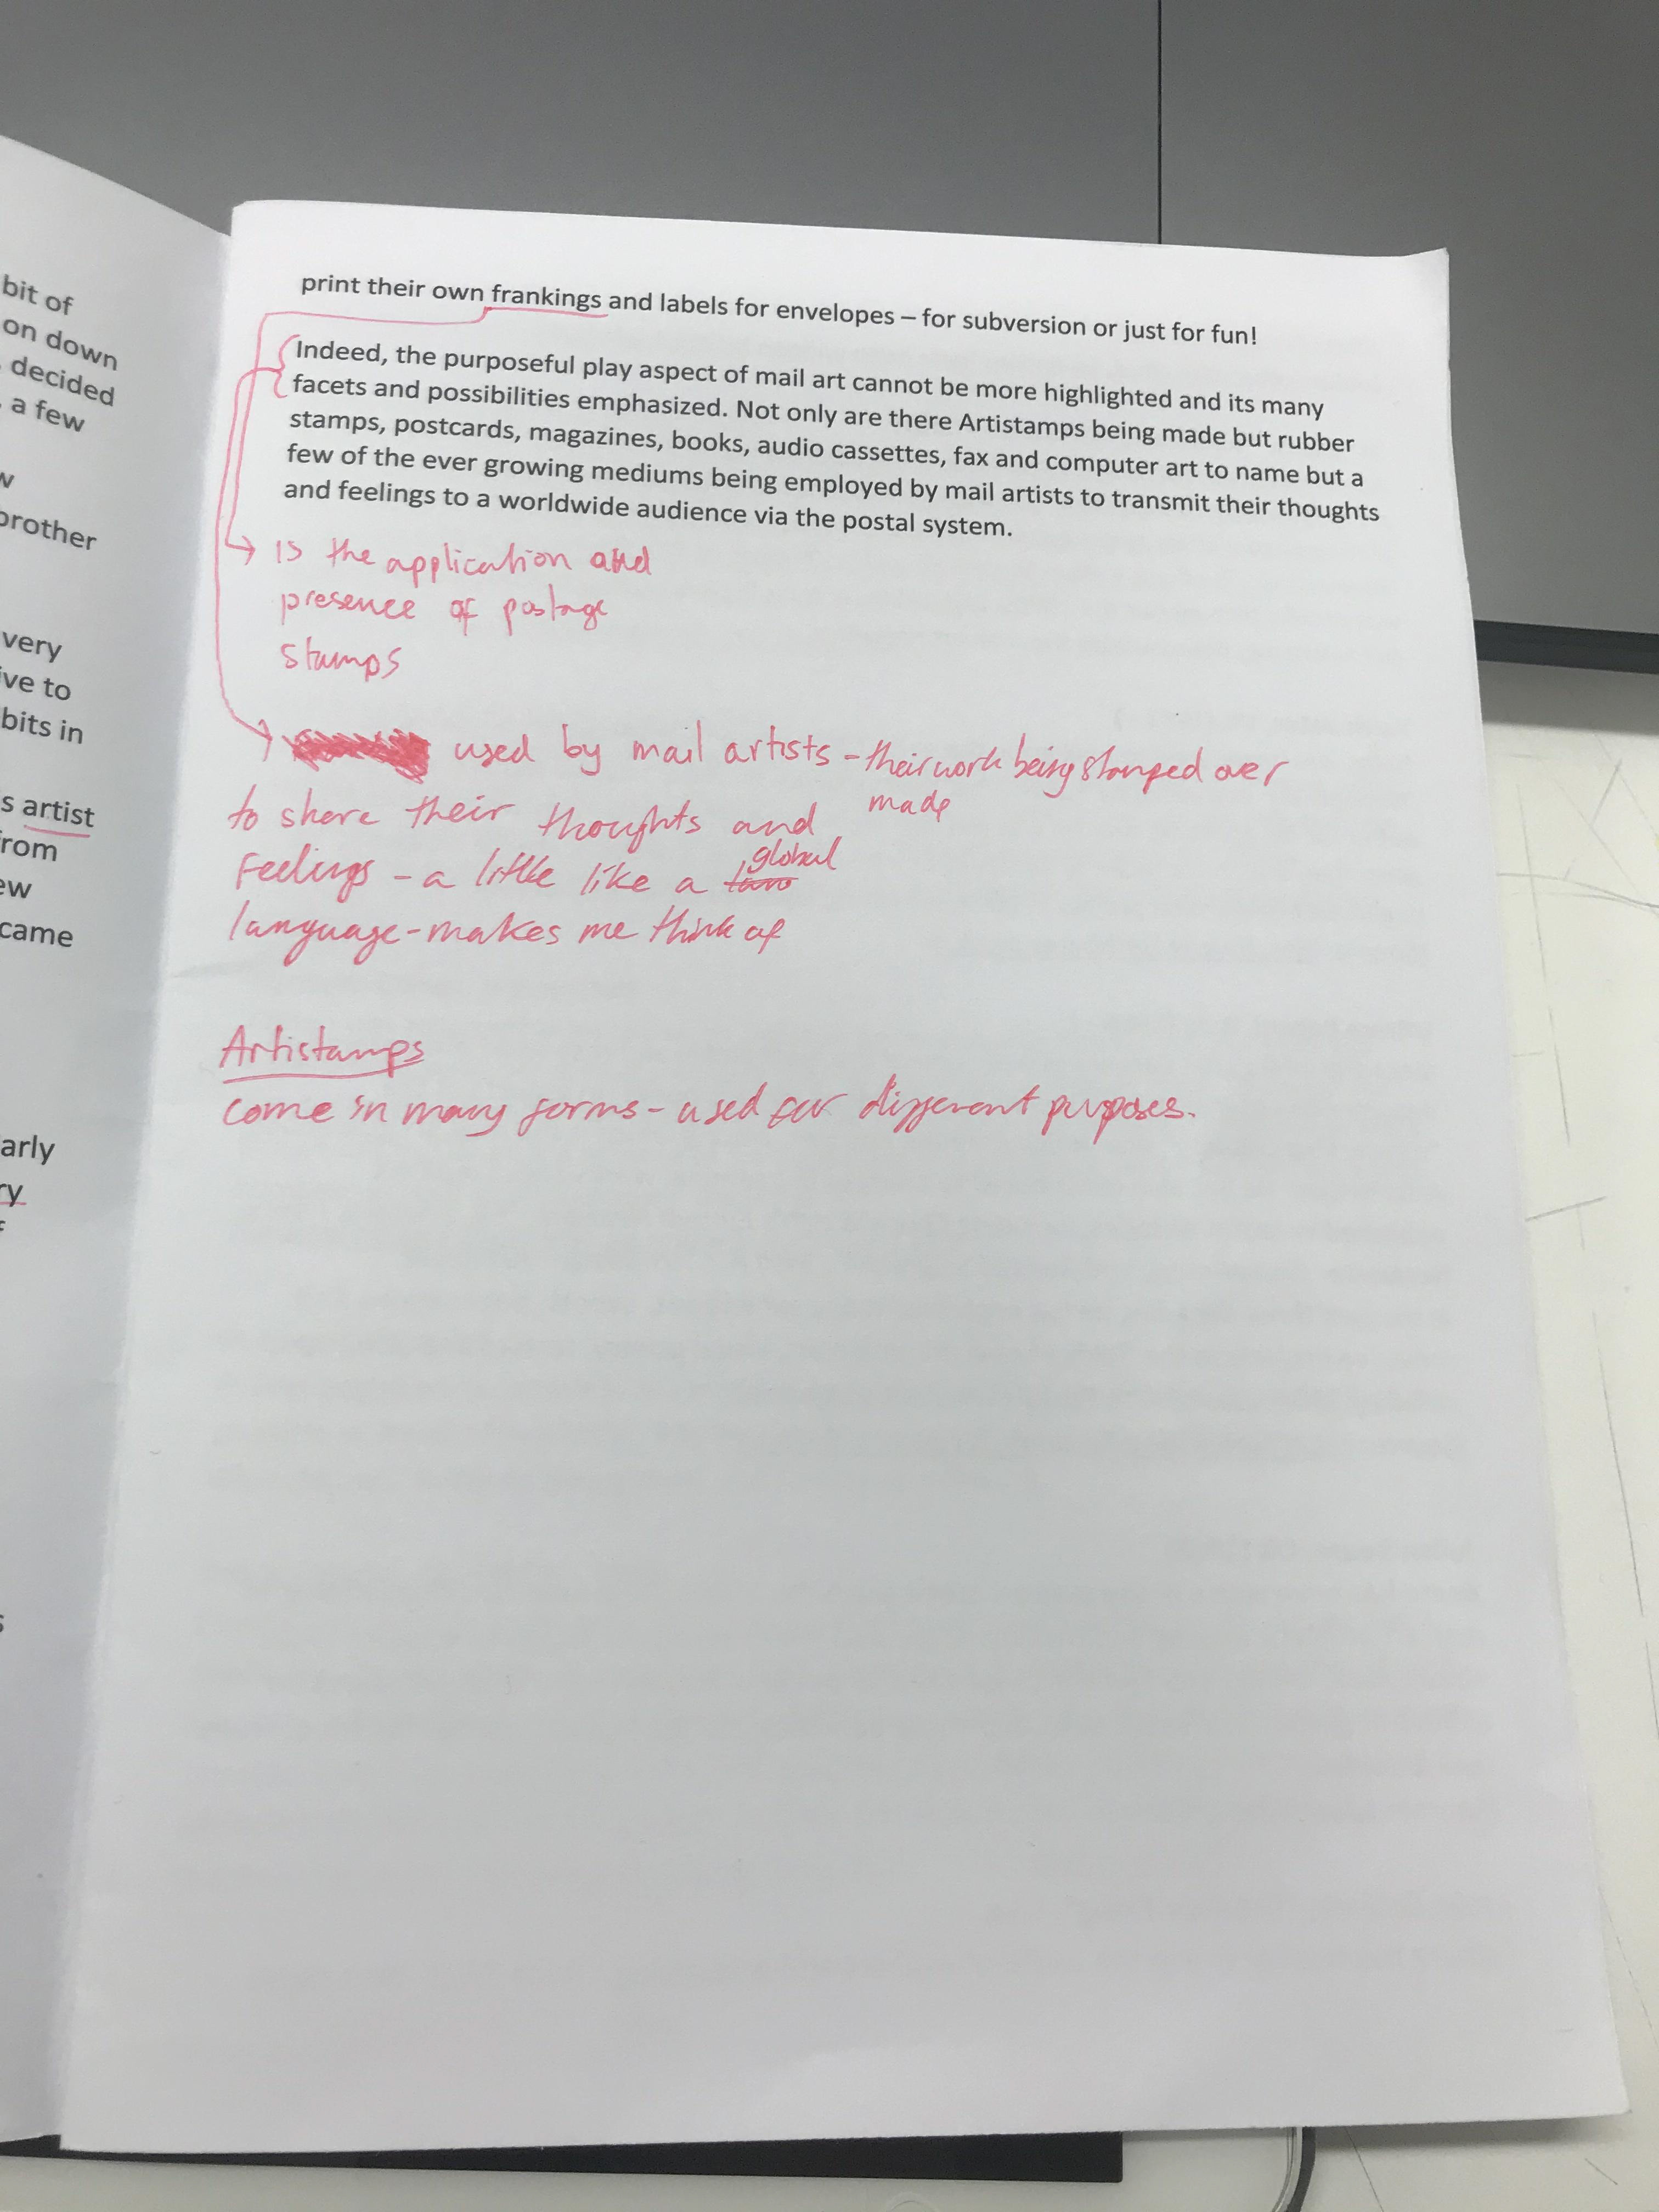 bit of
on down
decided
a few
brother
very
ive to
bits in
s artist
from
ew
came
arly
ry
print their own frankings and labels for envelopes – for subversion or just for fun!
Indeed, the purposeful play aspect of mail art cannot be more highlighted and its many
facets and possibilities emphasized. Not only are there Artistamps being made but rubber
stamps, postcards, magazines, books, audio cassettes, fax and computer art to name but a
few of the ever growing mediums being employed by mail artists to transmit their thoughts
and feelings to a worldwide audience via the postal system.
is the application and
presence of postage
stamps
used by mail artists - their work being stamped over
made
to share their thoughts and
Feelings - a little like a global
language - makes me think of
Artistamps
come in many forms - used for different purposes.